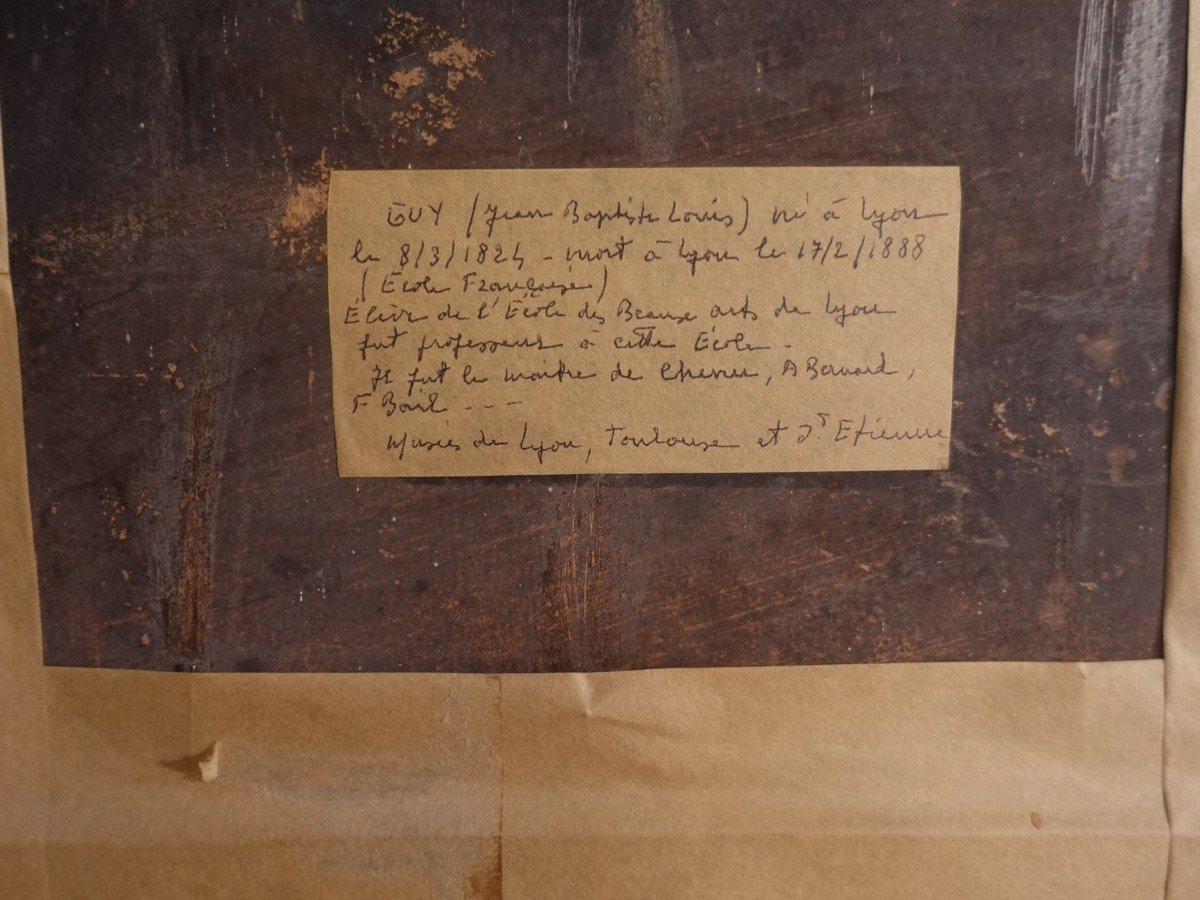 GUY (Jean Baptiste Louis) né à Lyon
le 8/3/1824 - mort à Lyon le 17/2/1888
(Ecole Française)
Élève de l'École des Beaux arts de Lyon
fut professeur à cette École -
Il fut le maître de Chevrier, A Bernard,
F Bail - - -
Musées de Lyon, Toulouse et St Etienne